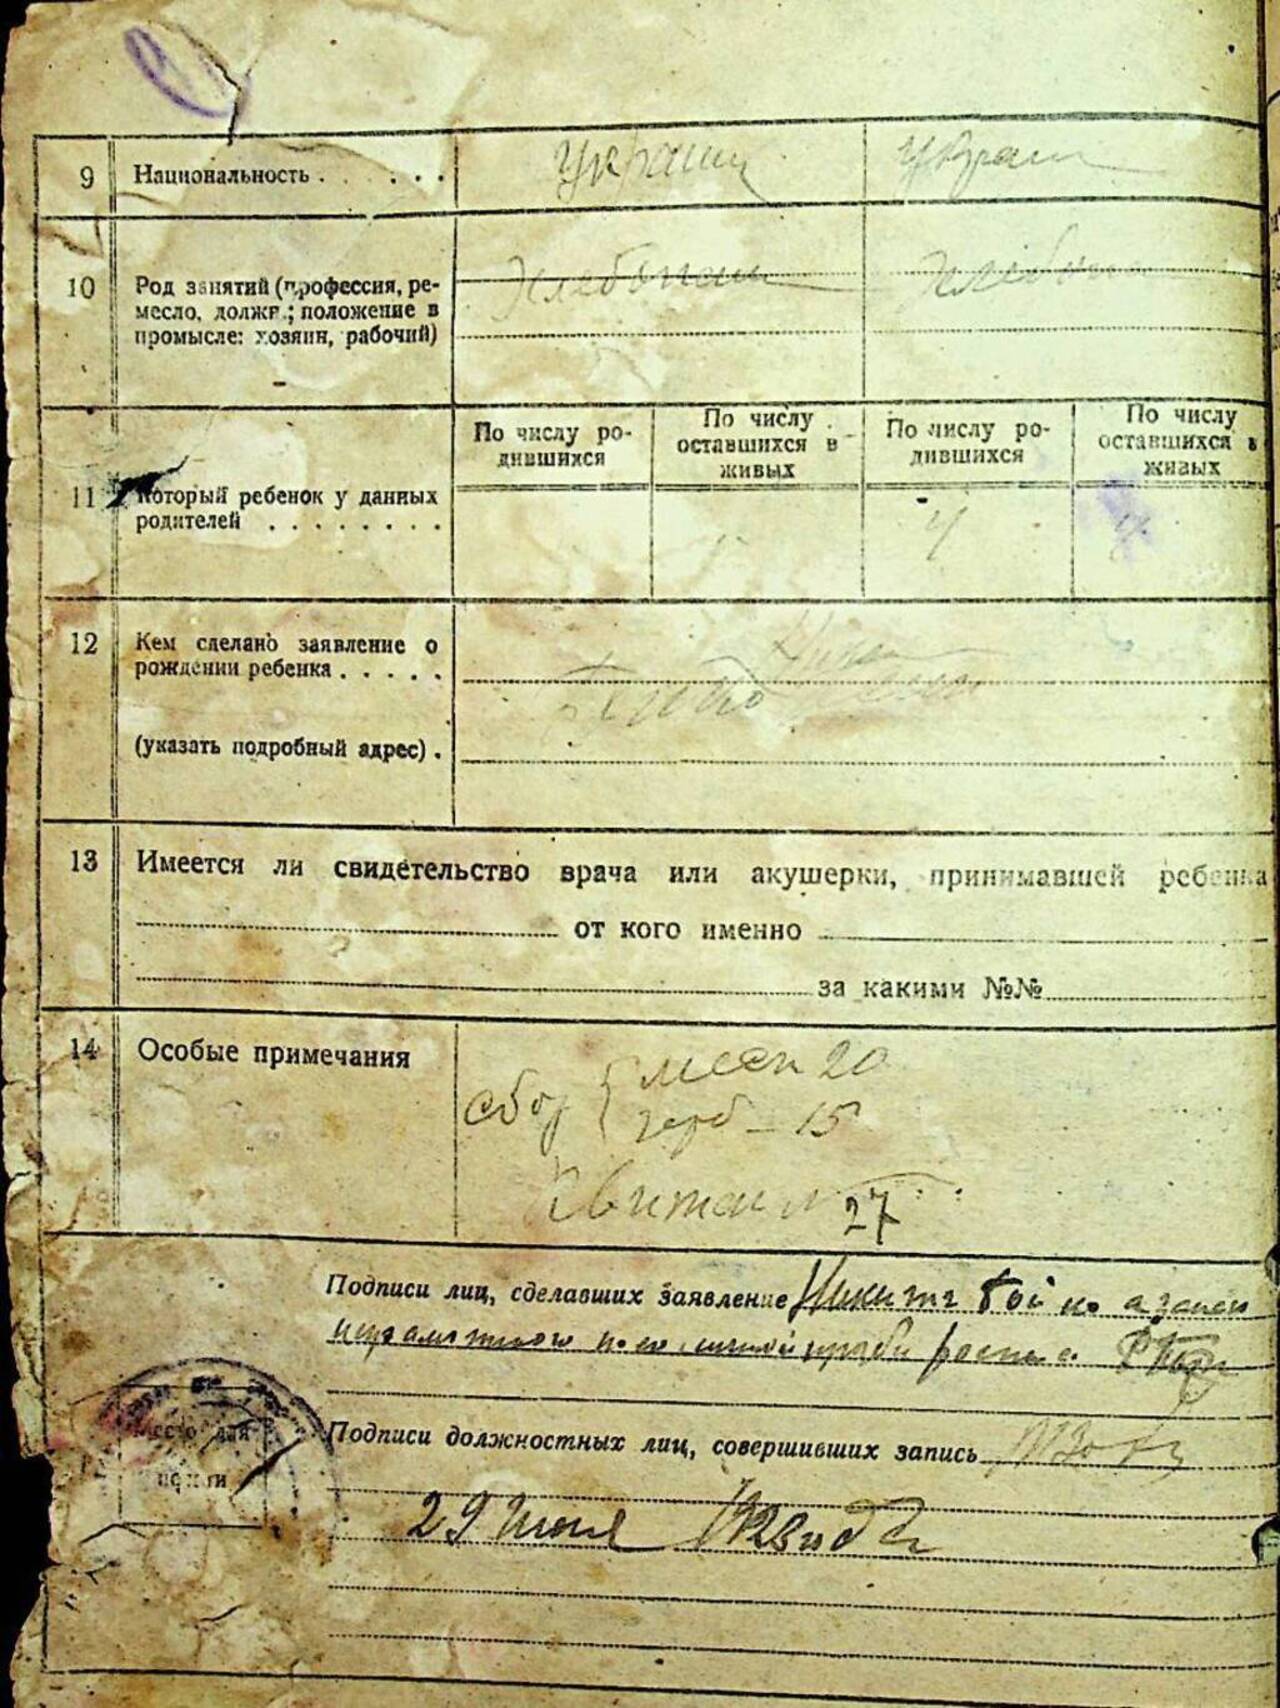 9 Национальность . . . . . . украин украин
10 Род занятий (профессия, ре-
месло, должн.; положение в
промысле: хозяин, рабочий)
хлебопаш хлебопаш
По числу ро-
дившихся
По числу
оставшихся в
живых
По числу ро-
дившихся
По числу
оставшихся в
живых
11 Который ребенок у данных
родителей . . . . . . . .
4 4
12 Кем сделано заявление о
рождении ребенка . . . . .
(указать подробный адрес) .
13 Имеется ли свидетельство врача или акушерки, принимавшей ребенка
от кого именно
за какими №№
14 Особые примечания
сбор { месн 20
герб - 15
Квитан № 27
Подписи лиц, сделавших заявление Никита
неграмотного по его личной прозьби
Место для
печати
Подписи должностных лиц, совершивших запись
29 Июня